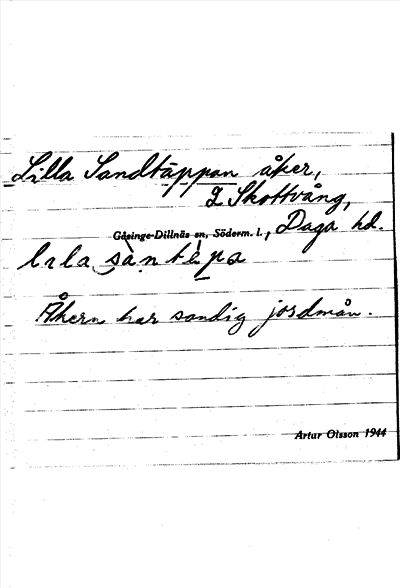 Lilla Sandtäppan åker,
Skottvång,
Gåsinge-Dillnäs sn, Söderm. l., Daga hd.
Åkern har sandig jordmån.
Artur Olsson 1944